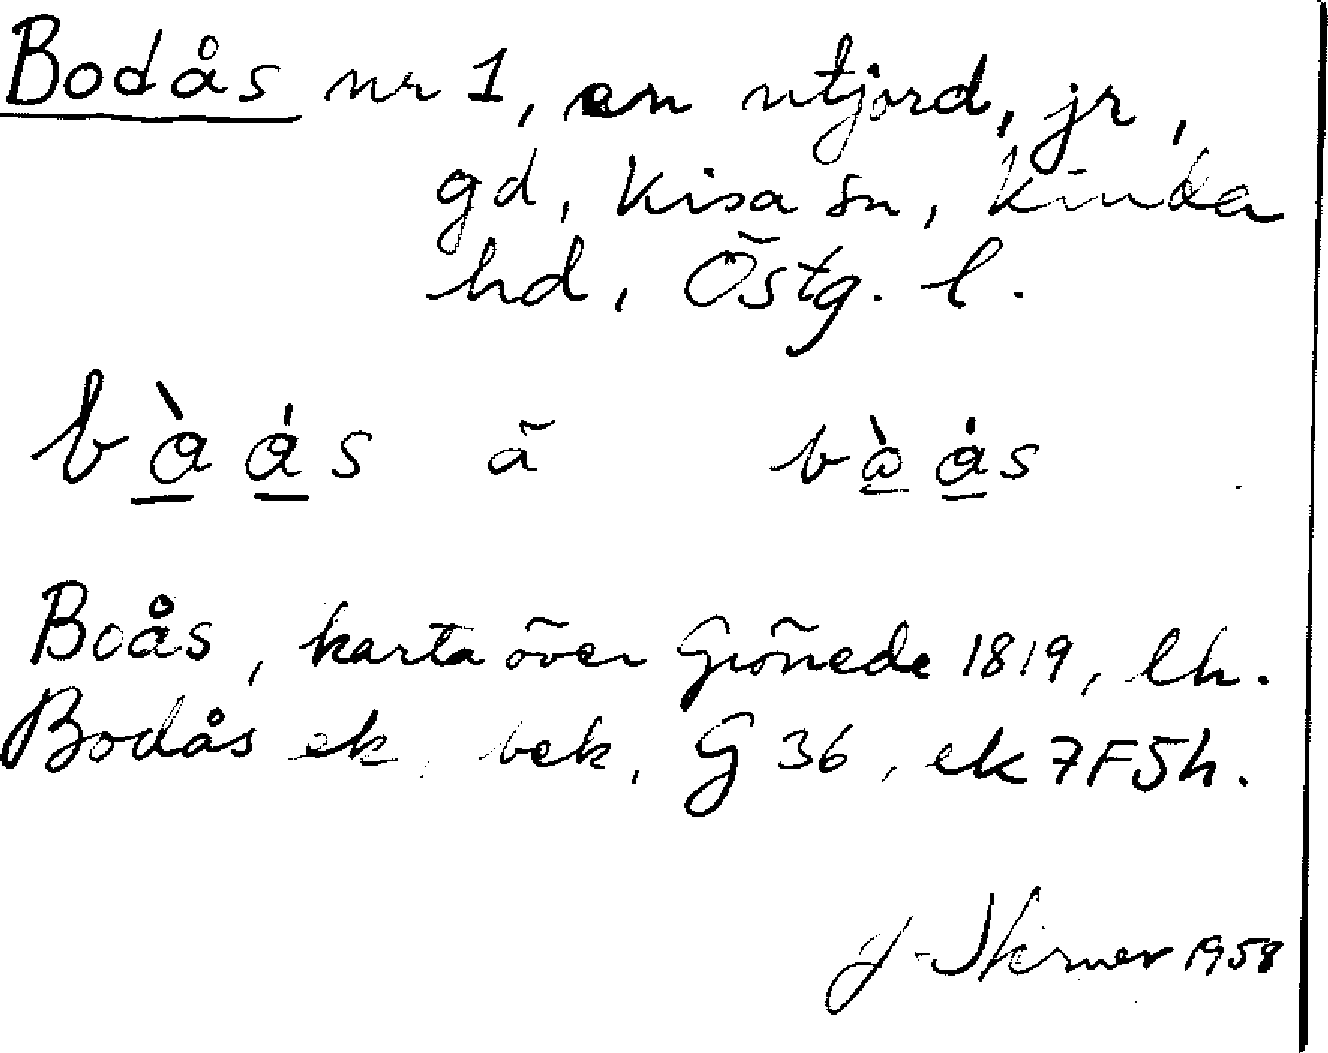 Bodås nr 1, en utjord, jr,
gd, Kisa sn, Kinda
hd, Östg. l.
bàás ä bàás
Boås, karta över Grönede 1819, lh.
Bodås ek, bek, G 36, ek 7F5h.
1958